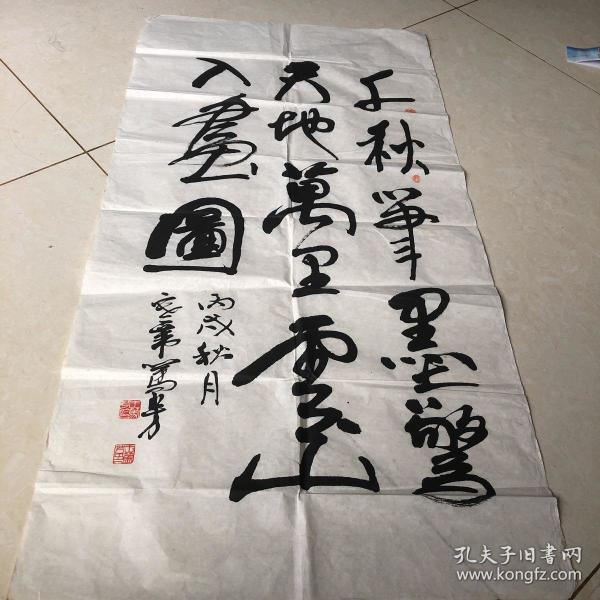 千秋筆墨驚
天地萬里雲山
入畫圖
丙戌秋月
孔夫子旧书网
www.kongfz.com